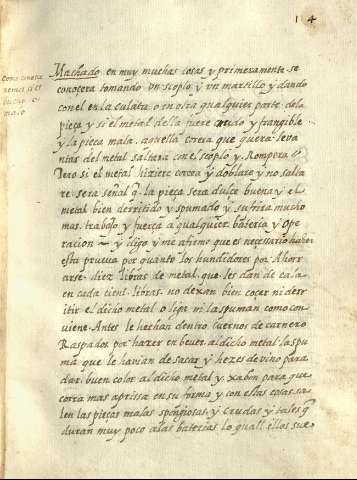 14
como cono
sera si el
bueno o
malo
Machado en muy muchas cosas y primeramente se
conoçera tomando vn scoplo y vn martillo y dando
con el en la culata o en otra qualquier parte dela
pieça y si el metal della fuere crudo y frangible
y la pieça mala. aquella correa que quera leva
ntar del metal saltera con el scoplo y Rompera
Pero si el metal hiziere correa y doblare y no salta
re sera señal q. la pieça sera dulce buena y el
metal bien derritido y spumado y sufrira mucho
mas. trabajo y fuerça a qualquier bateria y ope
racion y digo y me afirmo que es necessario hazer
esta prueva por quanto los hundidores por Ahorr
arse diez libras de metal. que les dan de cala
en cada cient libras. no dexan bien coçer ni derr
itir el dicho metal o liga ni la spuman como con
uiene. Antes le hechan dentro cuernos de carnero
Raspados por hazer enbeuer al dicho metal la spu
ma que le havian de sacar y hezes de vino para
dar buen color al dicho metal y xabon para que
corra mas aprissa en su forma y con estas cosas sa
len las pieças malas spongiosas. y crudas y tales q
duran muy poco a las baterias lo qual ellos sue